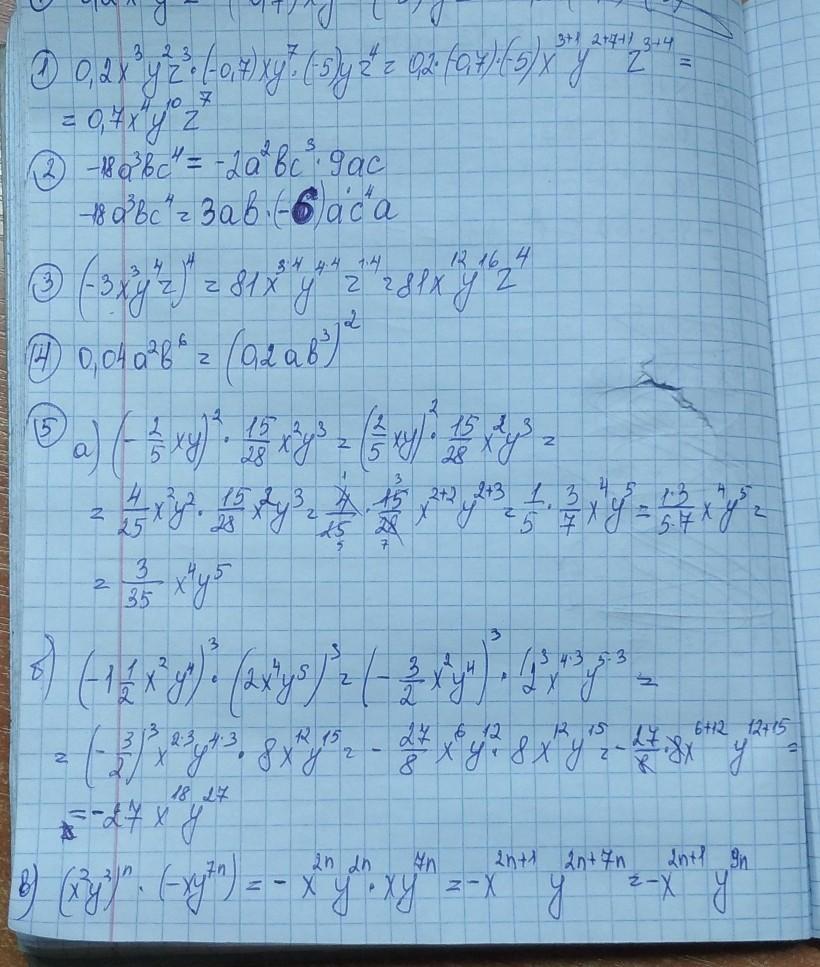 ① 0,2x³y²z³·(-0,7)xy⁷·(-5)yz⁴ = 0,2·(-0,7)·(-5)x³⁺¹y²⁺⁷⁺¹z³⁺⁴ =
= 0,7x⁴y¹⁰z⁷
② -18a³bc⁴ = -2a²bc³·9ac
-18a³bc⁴ = 3ab·(-6)ac⁴a
③ (-3x³y⁴z)⁴ = 81x³·⁴y⁴·⁴z¹·⁴ = 81x¹²y¹⁶z⁴
④ 0,04a²b⁶ = (0,2ab³)²
⑤ а) (-2/5 xy)²·15/28 x²y³ = (2/5 xy)²·15/28 x²y³ =
= 4/25 x²y²·15/28 x²y³ = 4/25·15/28 x²⁺²y²⁺³ = 1/5·3/7 x⁴y⁵ = 1·3/5·7 x⁴y⁵ =
= 3/35 x⁴y⁵
б) (-1 1/2 x²y⁴)³·(2x⁴y⁵)³ = (-3/2 x²y⁴)³·(2³x⁴·³y⁵·³ =
= (-3/2)³x²·³y⁴·³·8x¹²y¹⁵ = -27/8 x⁶y¹²·8x¹²y¹⁵ = -27/8·8x⁶⁺¹²y¹²⁺¹⁵ =
= -27x¹⁸y²⁷
в) (x²y²)ⁿ·(-xy⁷ⁿ) = -x²ⁿy²ⁿ·xy⁷ⁿ = -x²ⁿ⁺¹y²ⁿ⁺⁷ⁿ = -x²ⁿ⁺¹y⁹ⁿ